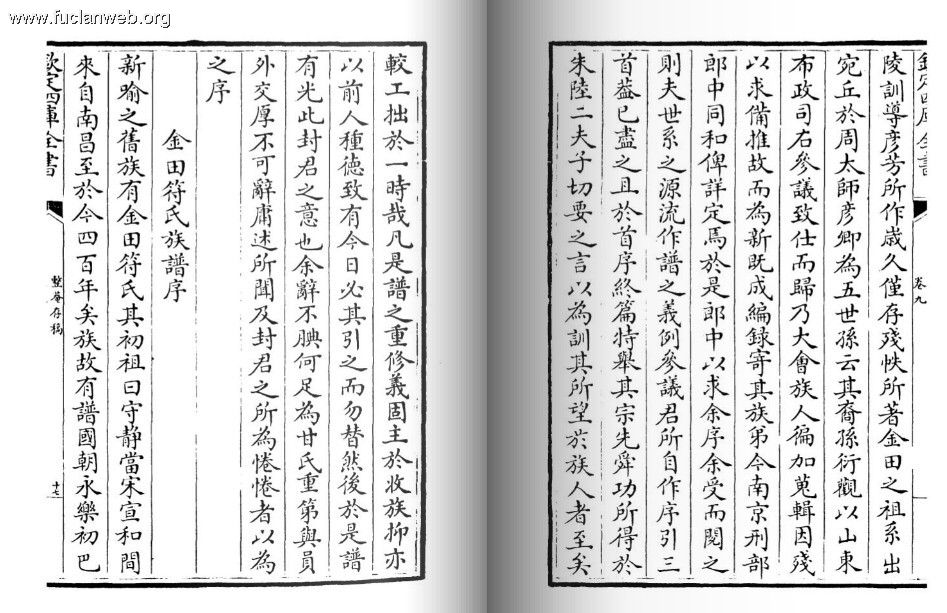 www.fuclanweb.org
較工拙於一時哉凡是譜之重修義固主於收族抑亦
以前人種德致有今日必其引之而勿替然後於是譜
有光此封君之意也余辭不腆何足為甘氏重第與員
外交厚不可辭庸述所聞及封君之所為惓惓者以為
之序
金田符氏族譜序
新喻之舊族有金田符氏其初祖曰守靜當宋宣和間
來自南昌至於今四百年矣族故有譜國朝永樂初巴
欽定四庫全書
整菴存稿
十七
欽定四庫全書
卷九
陵訓導彥芳所作歲久僅存殘帙所著金田之祖系出
宛丘於周太師彥卿為五世孫云其裔孫衍觀以山東
布政司右參議致仕而歸乃大會族人徧加蒐輯因殘
以求備推故而為新既成編錄寄其族第今南京刑部
郎中同和俾詳定焉於是郎中以求余序余受而閱之
則夫世系之源流作譜之義例參議君所自作序引三
首葢已盡之且於首序終篇特舉其宗先舜功所得於
朱陸二夫子切要之言以為訓其所望於族人者至矣